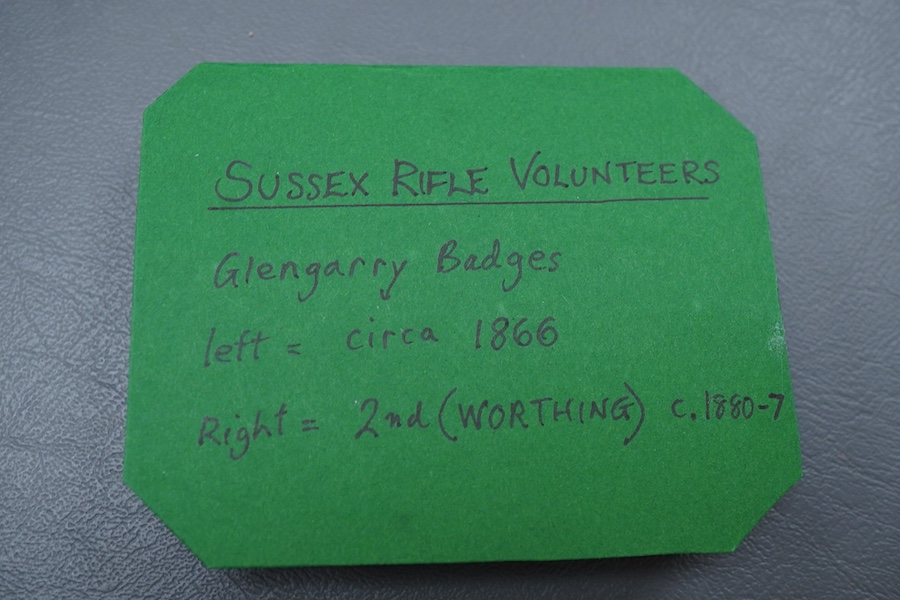 SUSSEX RIFLE VOLUNTEERS
Glengarry Badges
left = circa 1866
Right = 2nd (WORTHING) c.1880-7